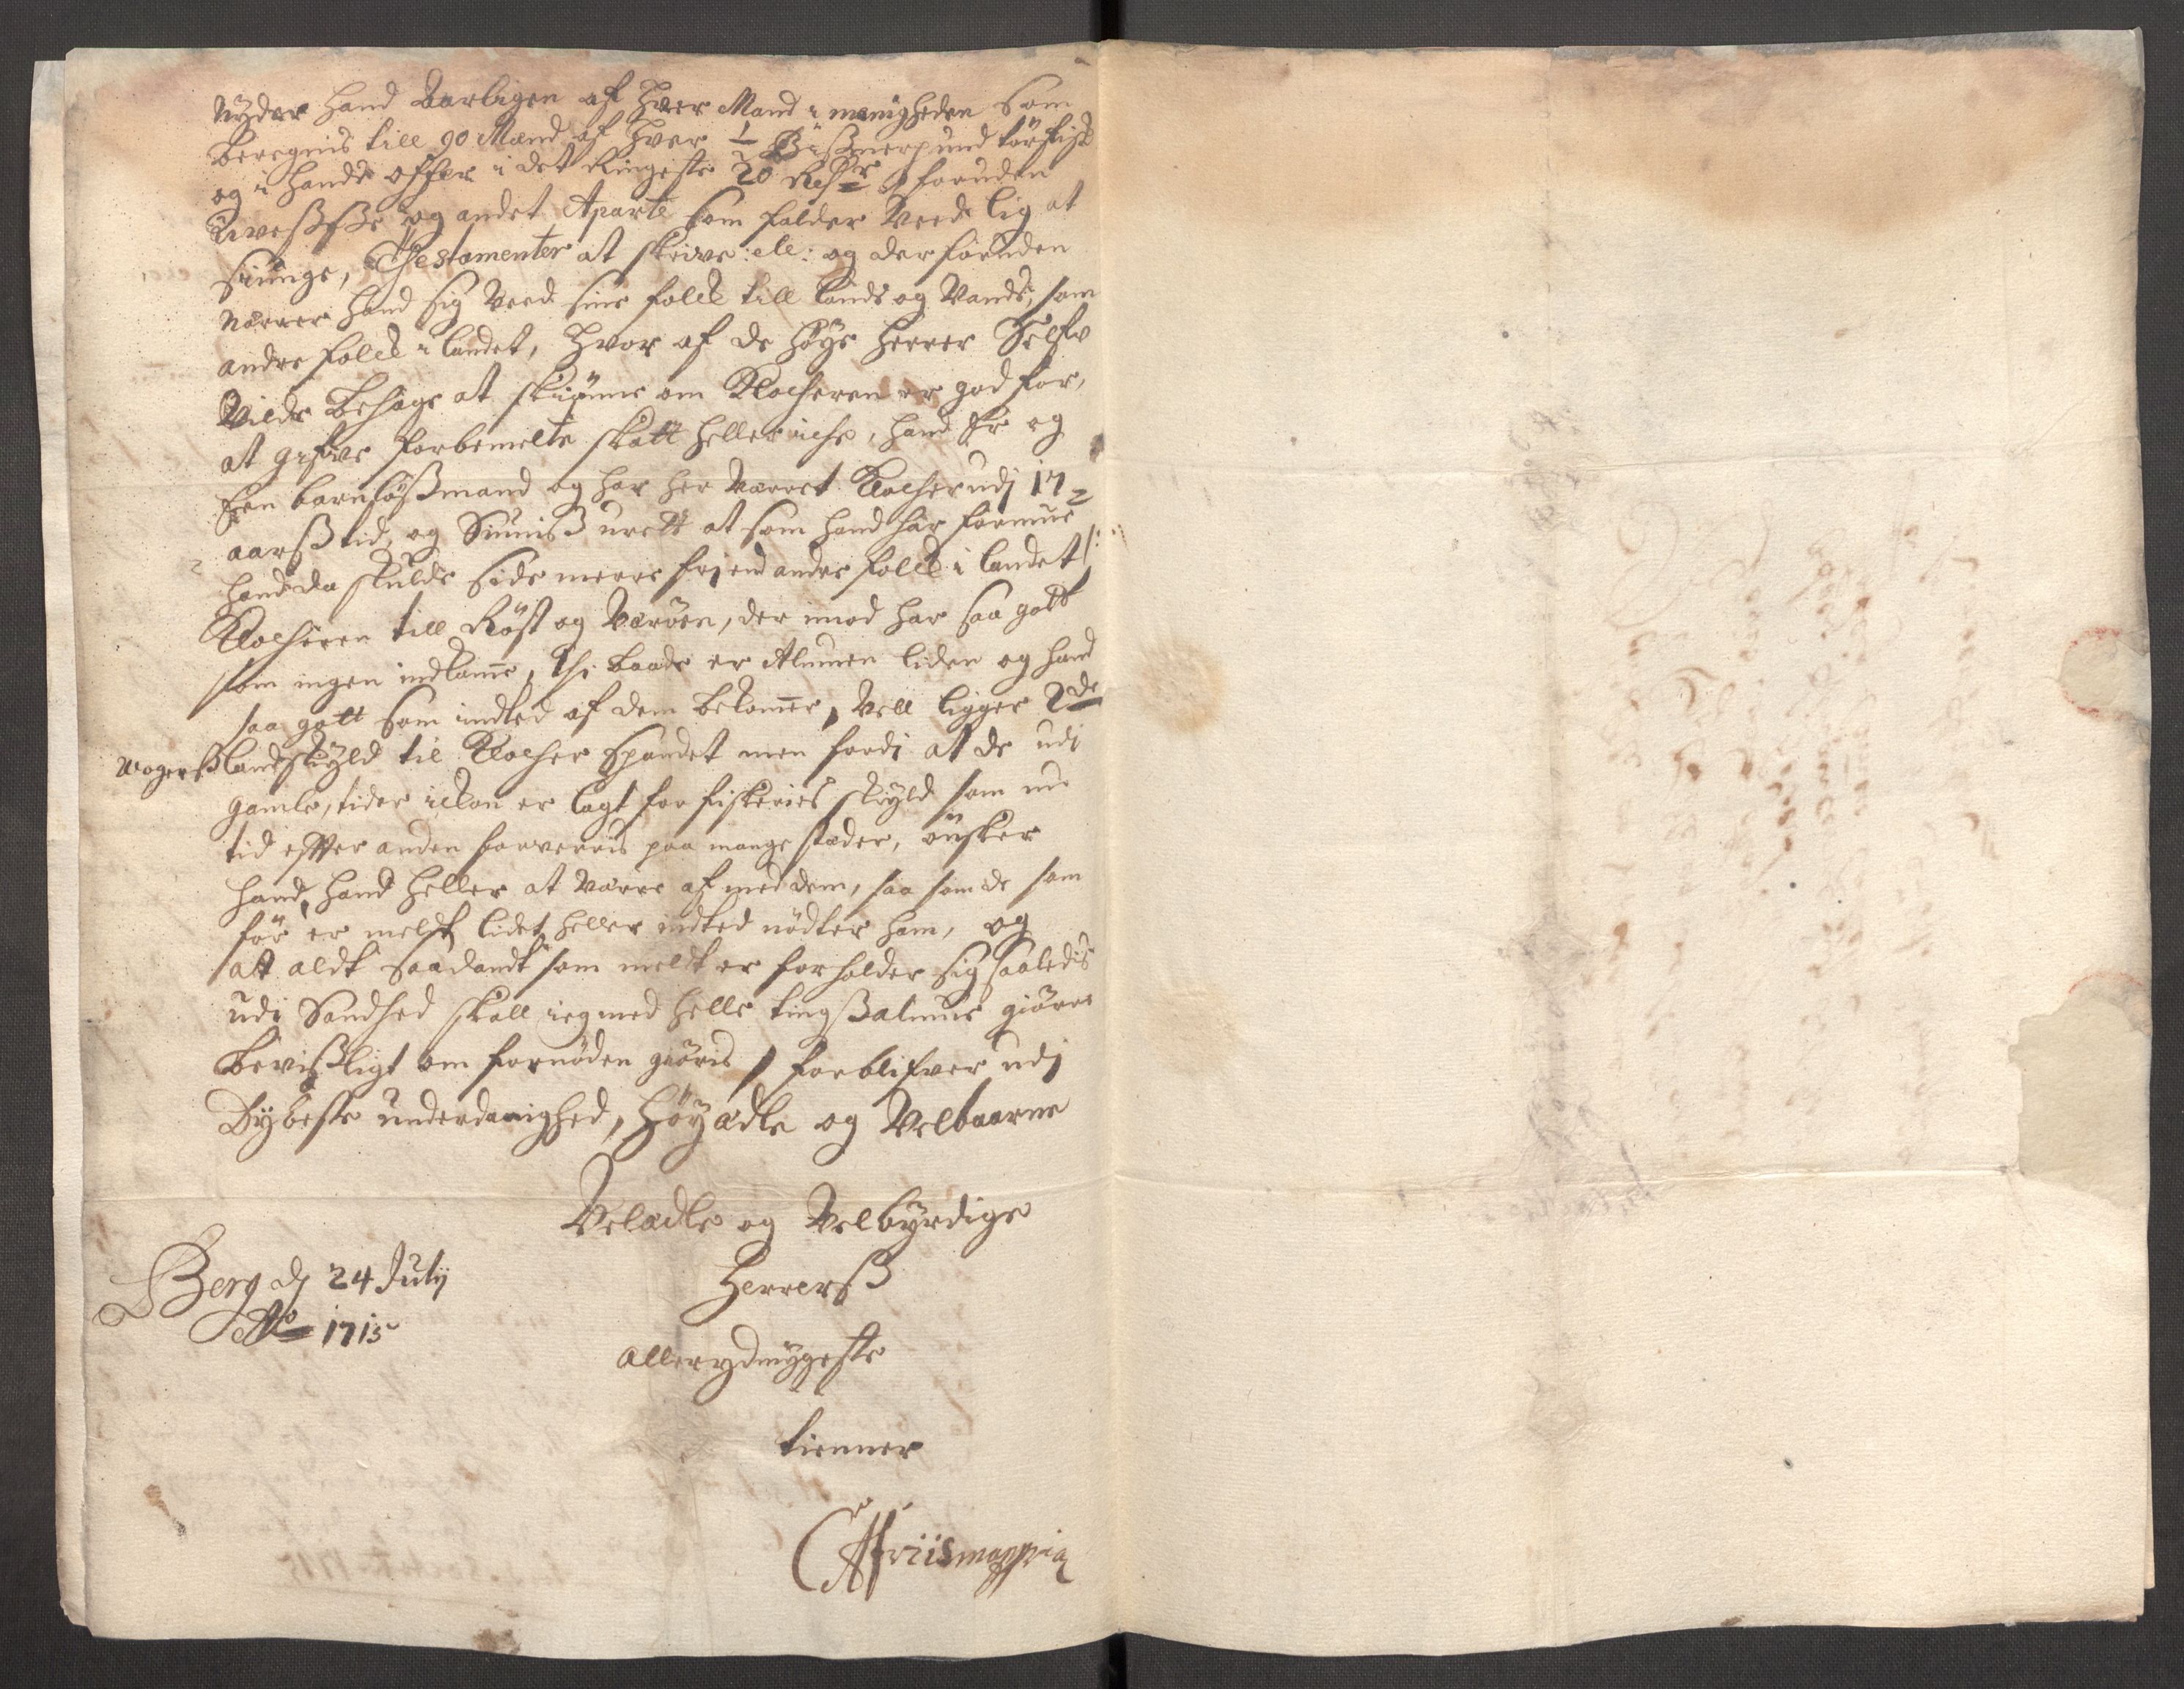 Nyder hand aarligen af hver Mand i menigheden som
beregnis till 90 Mand af hver ½ Bißmerpund törfisk
og i hands offer i det Ringeste 20 Rdr foruden
og andet Aparte som falder Veed lig at
siunge, Thestamenter at skrive: etc: og der foruden
Nærer hand sig Veed sine folck till Lands og Vands, som
andre folck i landet, hvor af de høye herrer Selfv
Vilde behage at skiönne om Klocheren er god for,
at gifve forbemelte skatt heller iche, hand er og
Een barnföß mand og har her Værret Klocher udj 17
aarß tid, og Siuniß urett at som hand har formue
hand da skulde side meere frj end andre folck i landet /:
Klocheren till Röst og Væröen, der imod har saa gott
som ingen indkome, thi baade er Almuen liden og hand
saa gott som indted af dem bekomer, Vell ligger 2de
Wogerß landskyld til Klocher Spandet men fordj at de udj
gamle, tider ickon er lagt for fiskeriets skyld som nu
tid effter anden forverris paa mange stæder, önsker
hand, hand heller at Værre af med dem, saa som de som
för er meldt, lidet heller indted nödter ham, og
att aldt saadandt som meldt er forholder sig saaledis
udi Sandhed skall ieg med helle tingß almue giörre
beviißligt om fornöden giöris / forblifver udj
Dybeste underdanighed, Höyædle og Velbaarne
Velædle og Velbyrdige
Herrerß
allerydmygeste
tienner
Berg d 24 Julij
Ao 1715
Friis mappria